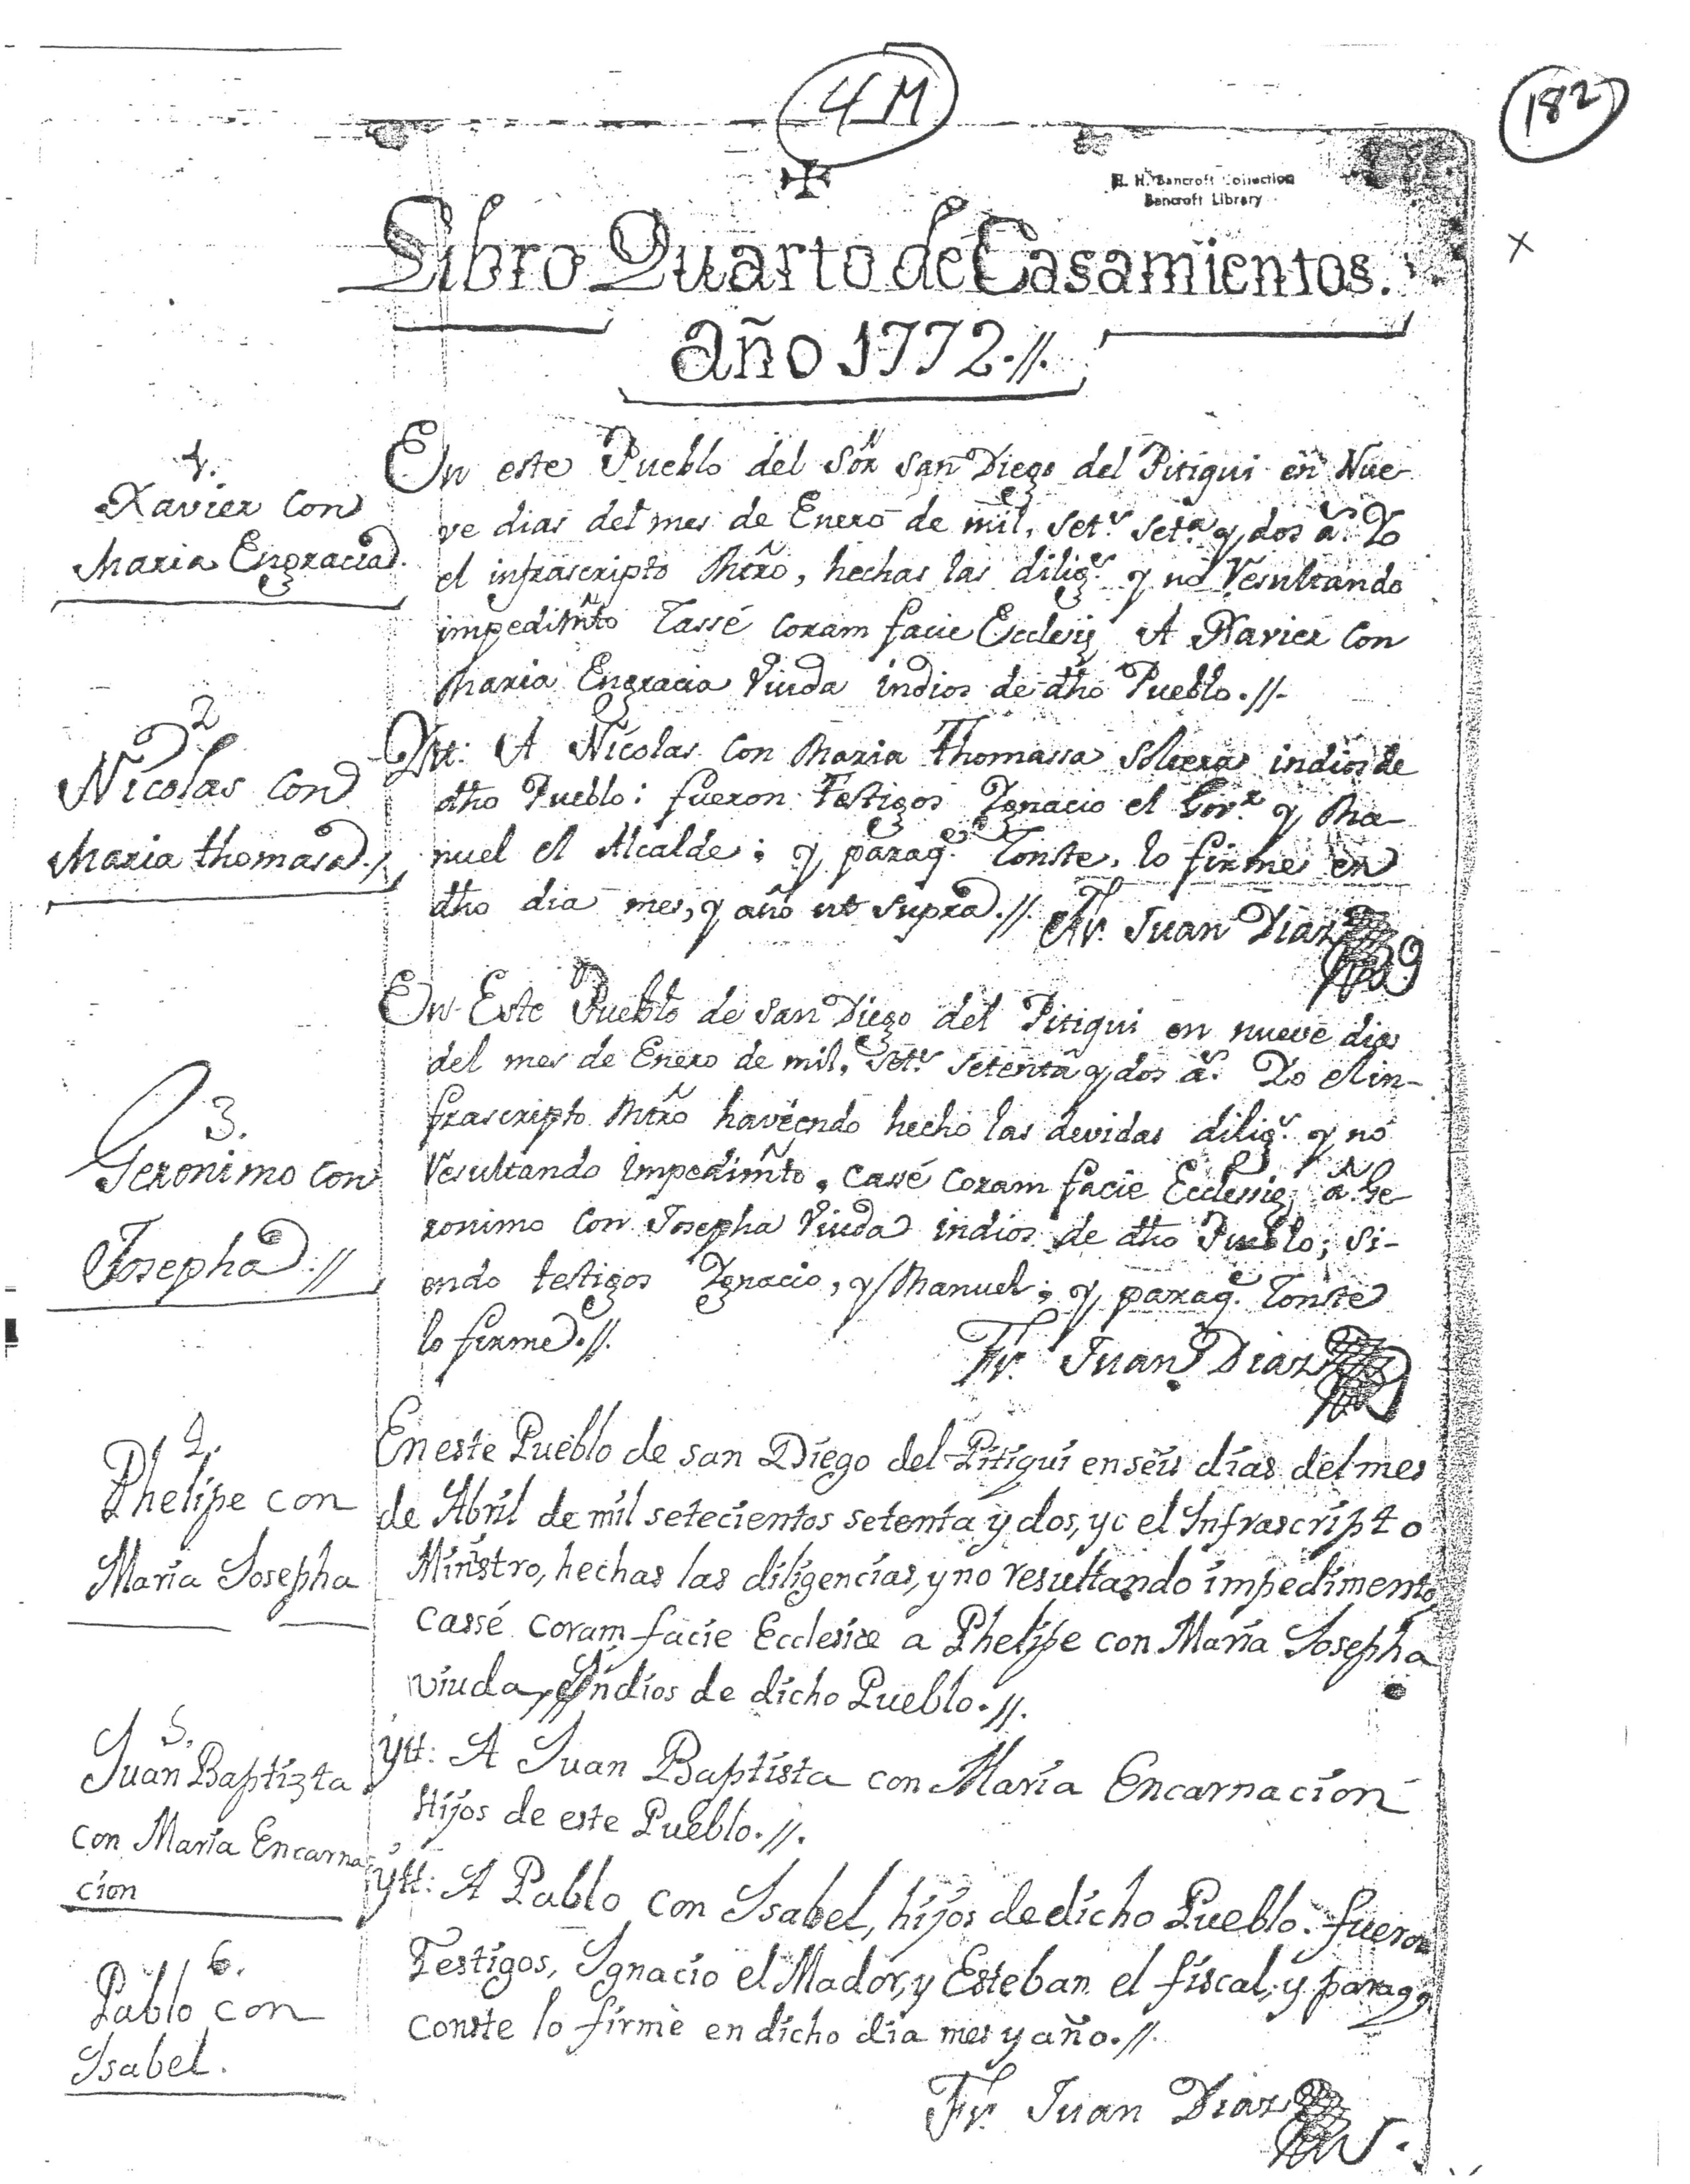 4M
182
H. H. Bancroft Collection
Bancroft Library
X
Libro Quarto de Casamientos.
año 1772.//.
1.
Xavier con
Maria Engracia.
En este Pueblo del Sōr San Diego del Pitigui en Nue
ve dias del mes de Enero de mil, set.s set.a y dos a.s Yo
el infrascripto Mrõ, hechas las dilig.s y no Resultando
impedimto Cassé coram facie Ecclesię A Xavier con
Maria Engracia Viuda indios de dho Pueblo.//.
2
Nicolas con
Maria thomasa./.
Ytt: A Nicolas con Maria Thomassa Soltera indios de
dho Pueblo: fueron Testigos Ygnacio el Gov.r y Ma-
nuel el Alcalde; y paraq.e Conste, lo firmé en
dho dia mes, y año ut supra.//. Fr. Juan Diaz
3.
Geronimo con
Josepha.//
En Este Pueblo de San Diego del Pitigui en nueve dias
del mes de Enero de mil, Set.s setenta y dos a.s Yo el in-
frascripto Mrõ haviendo hecho las devidas dilig.s y no
Resultando impedimto, cassé coram facie Ecclesię, a Ge-
ronimo con Josepha Viuda indios de dho Pueblo; si-
endo testigos Ygnacio, y Manuel; y paraq.e Conste
lo firmé.//.
Fr. Juan Diaz
4.
Phelipe con
Maria Josepha
En este Pueblo de san Diego del Pitigui en séis dias del mes
de Abril de mil setecientos setenta y dos, yo el Infrascripto
Ministro, hechas las diligencias, y no resultando impedimento,
cassé coram facie Ecclesiæ a Phelipe con Maria Josepha
viuda, Indios de dicho Pueblo.//.
5.
Juan Baptista
con Maria Encarna
cion
ytt: A Juan Baptista con Maria Encarnacion
Hijos de este Pueblo.//.
6.
Pablo con
Isabel.
ytt: A Pablo con Isabel, hijos de dicho Pueblo. fueron
Testigos, Ignacio el Mador, y Esteban el fiscal; y paraq.
conste lo firmè en dicho dia mes y año.//.
Fr. Juan Diaz